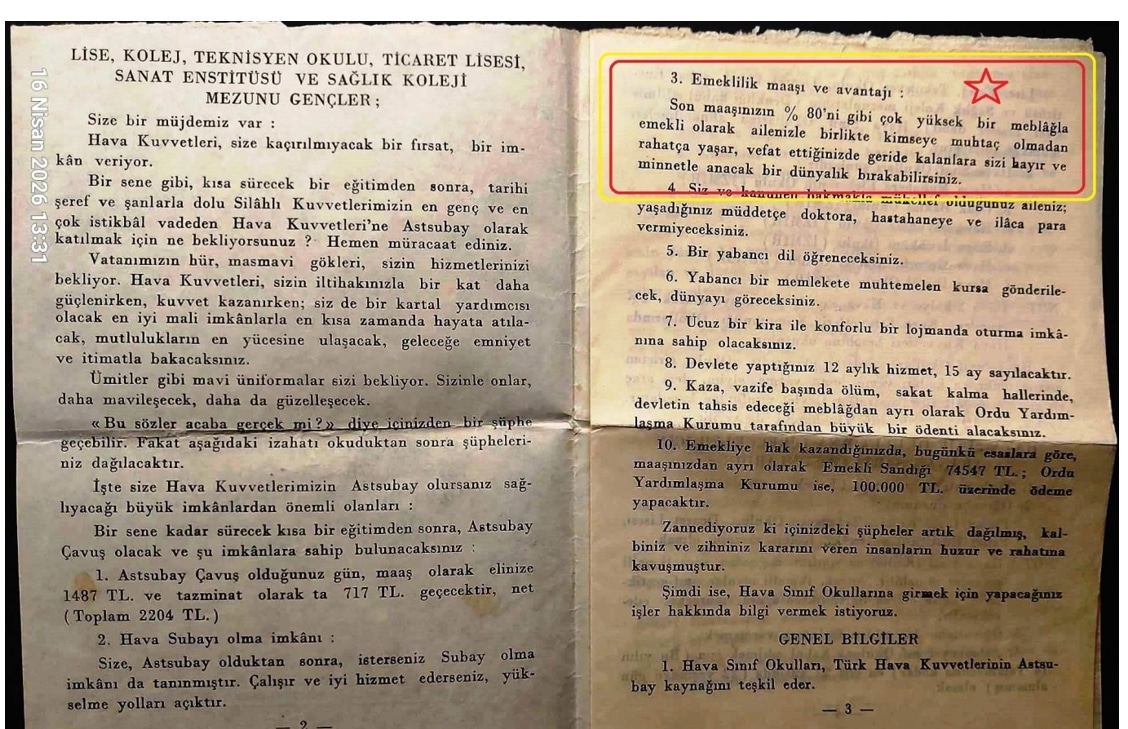 LİSE, KOLEJ, TEKNİSYEN OKULU, TİCARET LİSESİ,
SANAT ENSTİTÜSÜ VE SAĞLIK KOLEJİ
MEZUNU GENÇLER ;
Size bir müjdemiz var :
Hava Kuvvetleri, size kaçırılmıyacak bir fırsat, bir im-
kân veriyor.
Bir sene gibi, kısa sürecek bir eğitimden sonra, tarihi
şeref ve şanlarla dolu Silâhlı Kuvvetlerimizin en genç ve en
çok istikbâl vadeden Hava Kuvvetleri'ne Astsubay olarak
katılmak için ne bekliyorsunuz ? Hemen müracaat ediniz.
Vatanımızın hür, masmavi gökleri, sizin hizmetlerinizi
bekliyor. Hava Kuvvetleri, sizin iltihakınızla bir kat daha
güçlenirken, kuvvet kazanırken; siz de bir kartal yardımcısı
olacak en iyi mali imkânlarla en kısa zamanda hayata atıla-
cak, mutlulukların en yücesine ulaşacak, geleceğe emniyet
ve itimatla bakacaksınız.
Ümitler gibi mavi üniformalar sizi bekliyor. Sizinle onlar,
daha mavileşecek, daha da güzelleşecek.
« Bu sözler acaba gerçek mi ? » diye içinizden bir şüphe
geçebilir. Fakat aşağıdaki izahatı okuduktan sonra şüpheleri-
niz dağılacaktır.
İşte size Hava Kuvvetlerimizin Astsubay olursanız sağ-
lıyacağı büyük imkânlardan önemli olanları :
Bir sene kadar sürecek kısa bir eğitimden sonra, Astsubay
Çavuş olacak ve şu imkânlara sahip bulunacaksınız :
1. Astsubay Çavuş olduğunuz gün, maaş olarak elinize
1487 TL. ve tazminat olarak ta 717 TL. geçecektir, net
( Toplam 2204 TL. )
2. Hava Subayı olma imkânı :
Size, Astsubay olduktan sonra, isterseniz Subay olma
imkânı da tanınmıştır. Çalışır ve iyi hizmet ederseniz, yük-
selme yolları açıktır.
— 2 —
3. Emeklilik maaşı ve avantajı :
Son maaşınızın % 80'ni gibi çok yüksek bir meblâğla
emekli olarak ailenizle birlikte kimseye muhtaç olmadan
rahatça yaşar, vefat ettiğinizde geride kalanlara sizi hayır ve
minnetle anacak bir dünyalık bırakabilirsiniz.
4. Siz ve kanunen bakmakla mükellef olduğunuz aileniz;
yaşadığınız müddetçe doktora, hastahaneye ve ilâca para
vermiyeceksiniz.
5. Bir yabancı dil öğreneceksiniz.
6. Yabancı bir memlekete muhtemelen kursa gönderile-
cek, dünyayı göreceksiniz.
7. Ucuz bir kira ile konforlu bir lojmanda oturma imkâ-
nına sahip olacaksınız.
8. Devlete yaptığınız 12 aylık hizmet, 15 ay sayılacaktır.
9. Kaza, vazife başında ölüm, sakat kalma hallerinde,
devletin tahsis edeceği meblâğdan ayrı olarak Ordu Yardım-
laşma Kurumu tarafından büyük bir ödenti alacaksınız.
10. Emekliye hak kazandığınızda, bugünkü esaslara göre,
maaşınızdan ayrı olarak Emekli Sandığı 74547 TL. ; Ordu
Yardımlaşma Kurumu ise, 100.000 TL. üzerinde ödeme
yapacaktır.
Zannediyoruz ki içinizdeki şüpheler artık dağılmış, kal-
biniz ve zihniniz kararını veren insanların huzur ve rahatına
kavuşmuştur.
Şimdi ise, Hava Sınıf Okullarına girmek için yapacağınız
işler hakkında bilgi vermek istiyoruz.
GENEL BİLGİLER
1. Hava Sınıf Okulları, Türk Hava Kuvvetlerinin Astsu-
bay kaynağını teşkil eder.
— 3 —
16 Nisan 2026 13:31